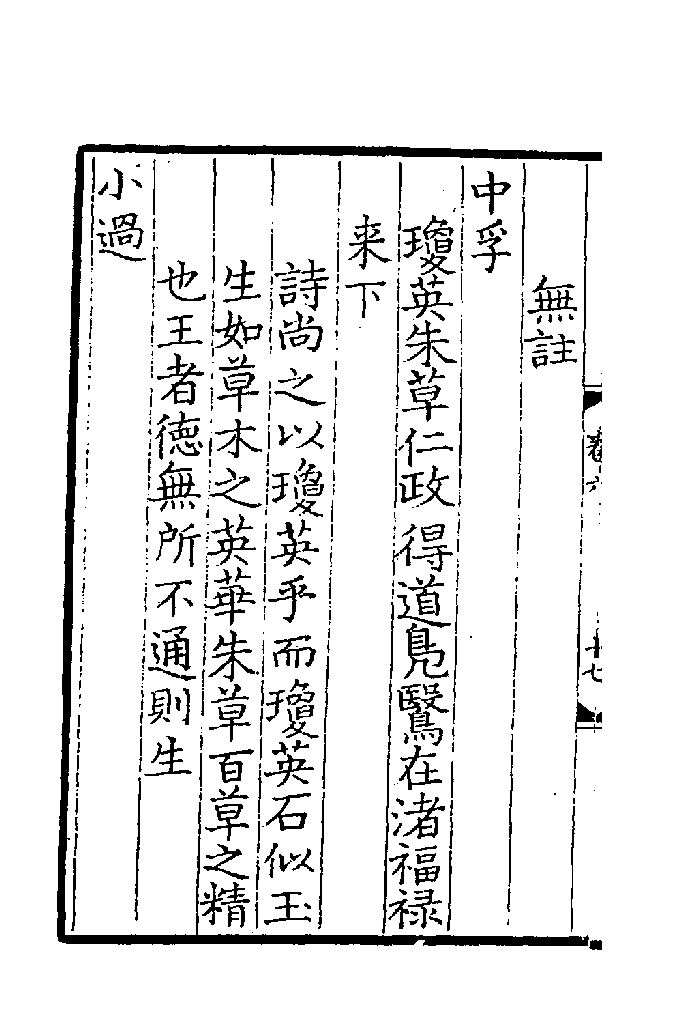 無註
中孚
瓊英朱草仁政得道鳧鷖在渚福禄
来下
詩尚之以瓊英乎而瓊英石似玉
生如草木之英華朱草百草之精
也王者徳無所不通則生
小過